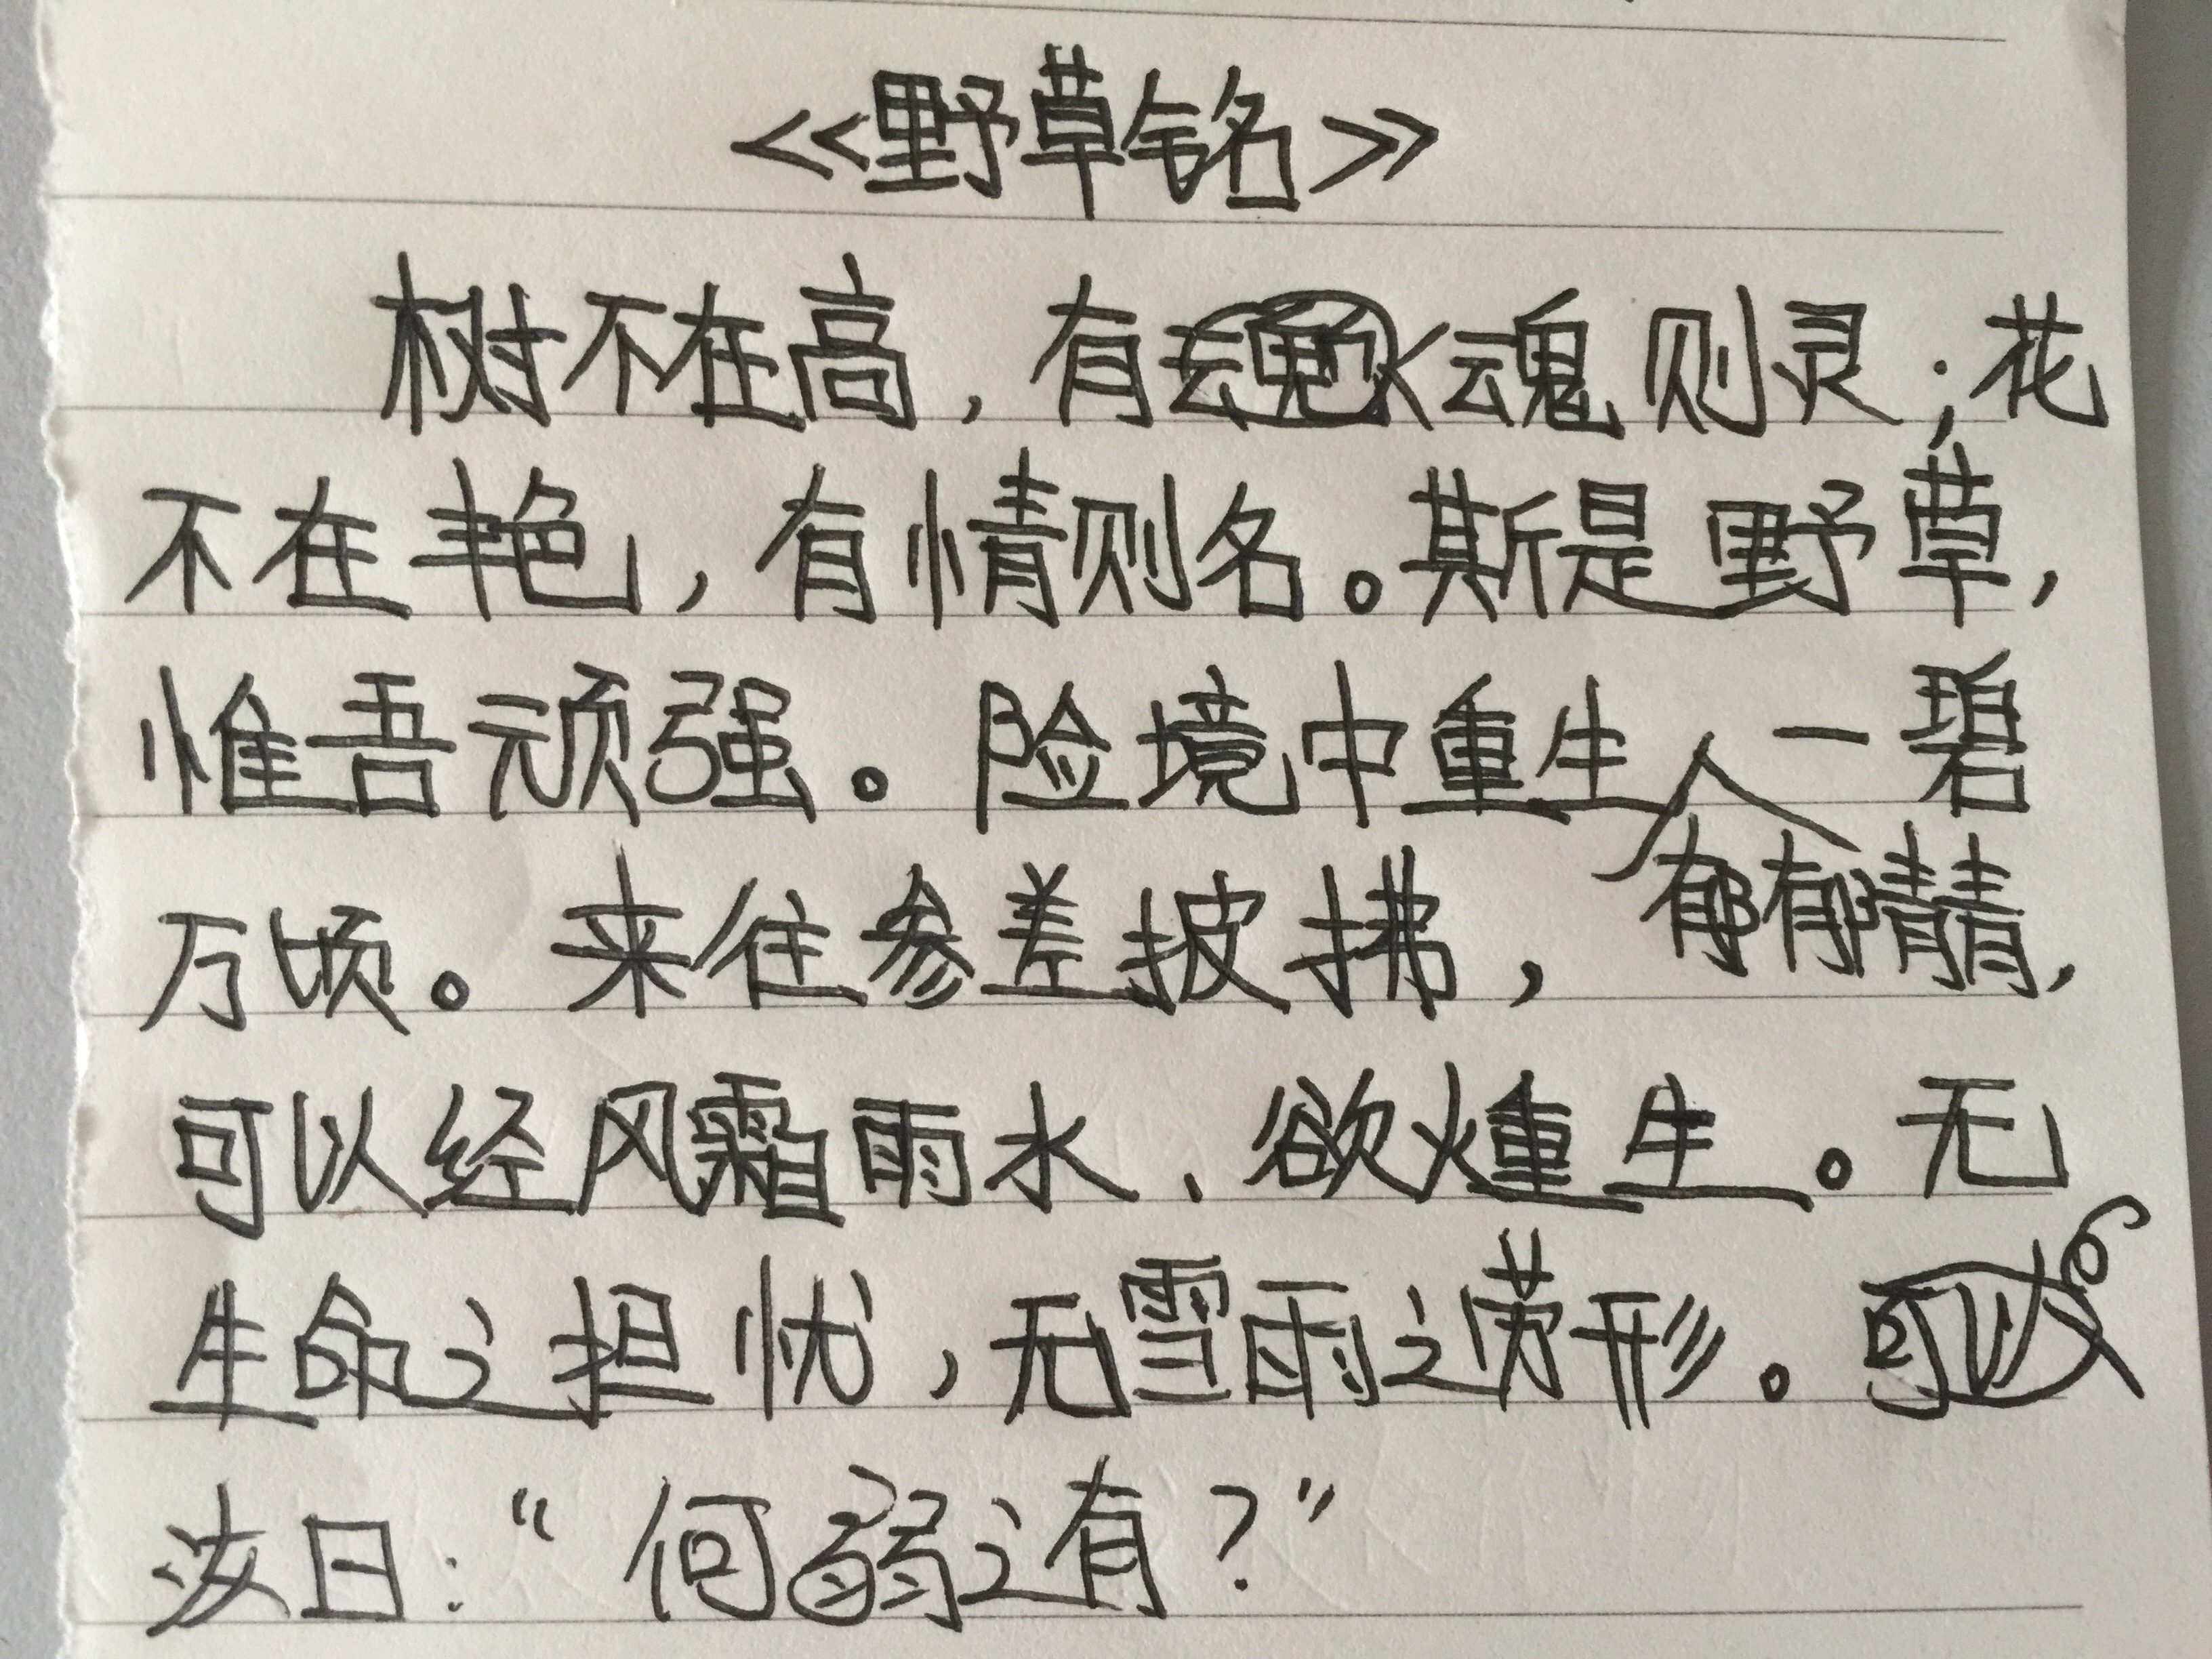 <<野草铭>>
树不在高，有魂则灵；花
不在艳，有情则名。斯是野草，
惟吾顽强。险境中重生，一碧
万顷。来往参差披拂，郁郁青青，
可以经风霜雨水、欲火重生。无
生命之担忧，无雪雨之劳形。
汝曰：“何弱之有？”